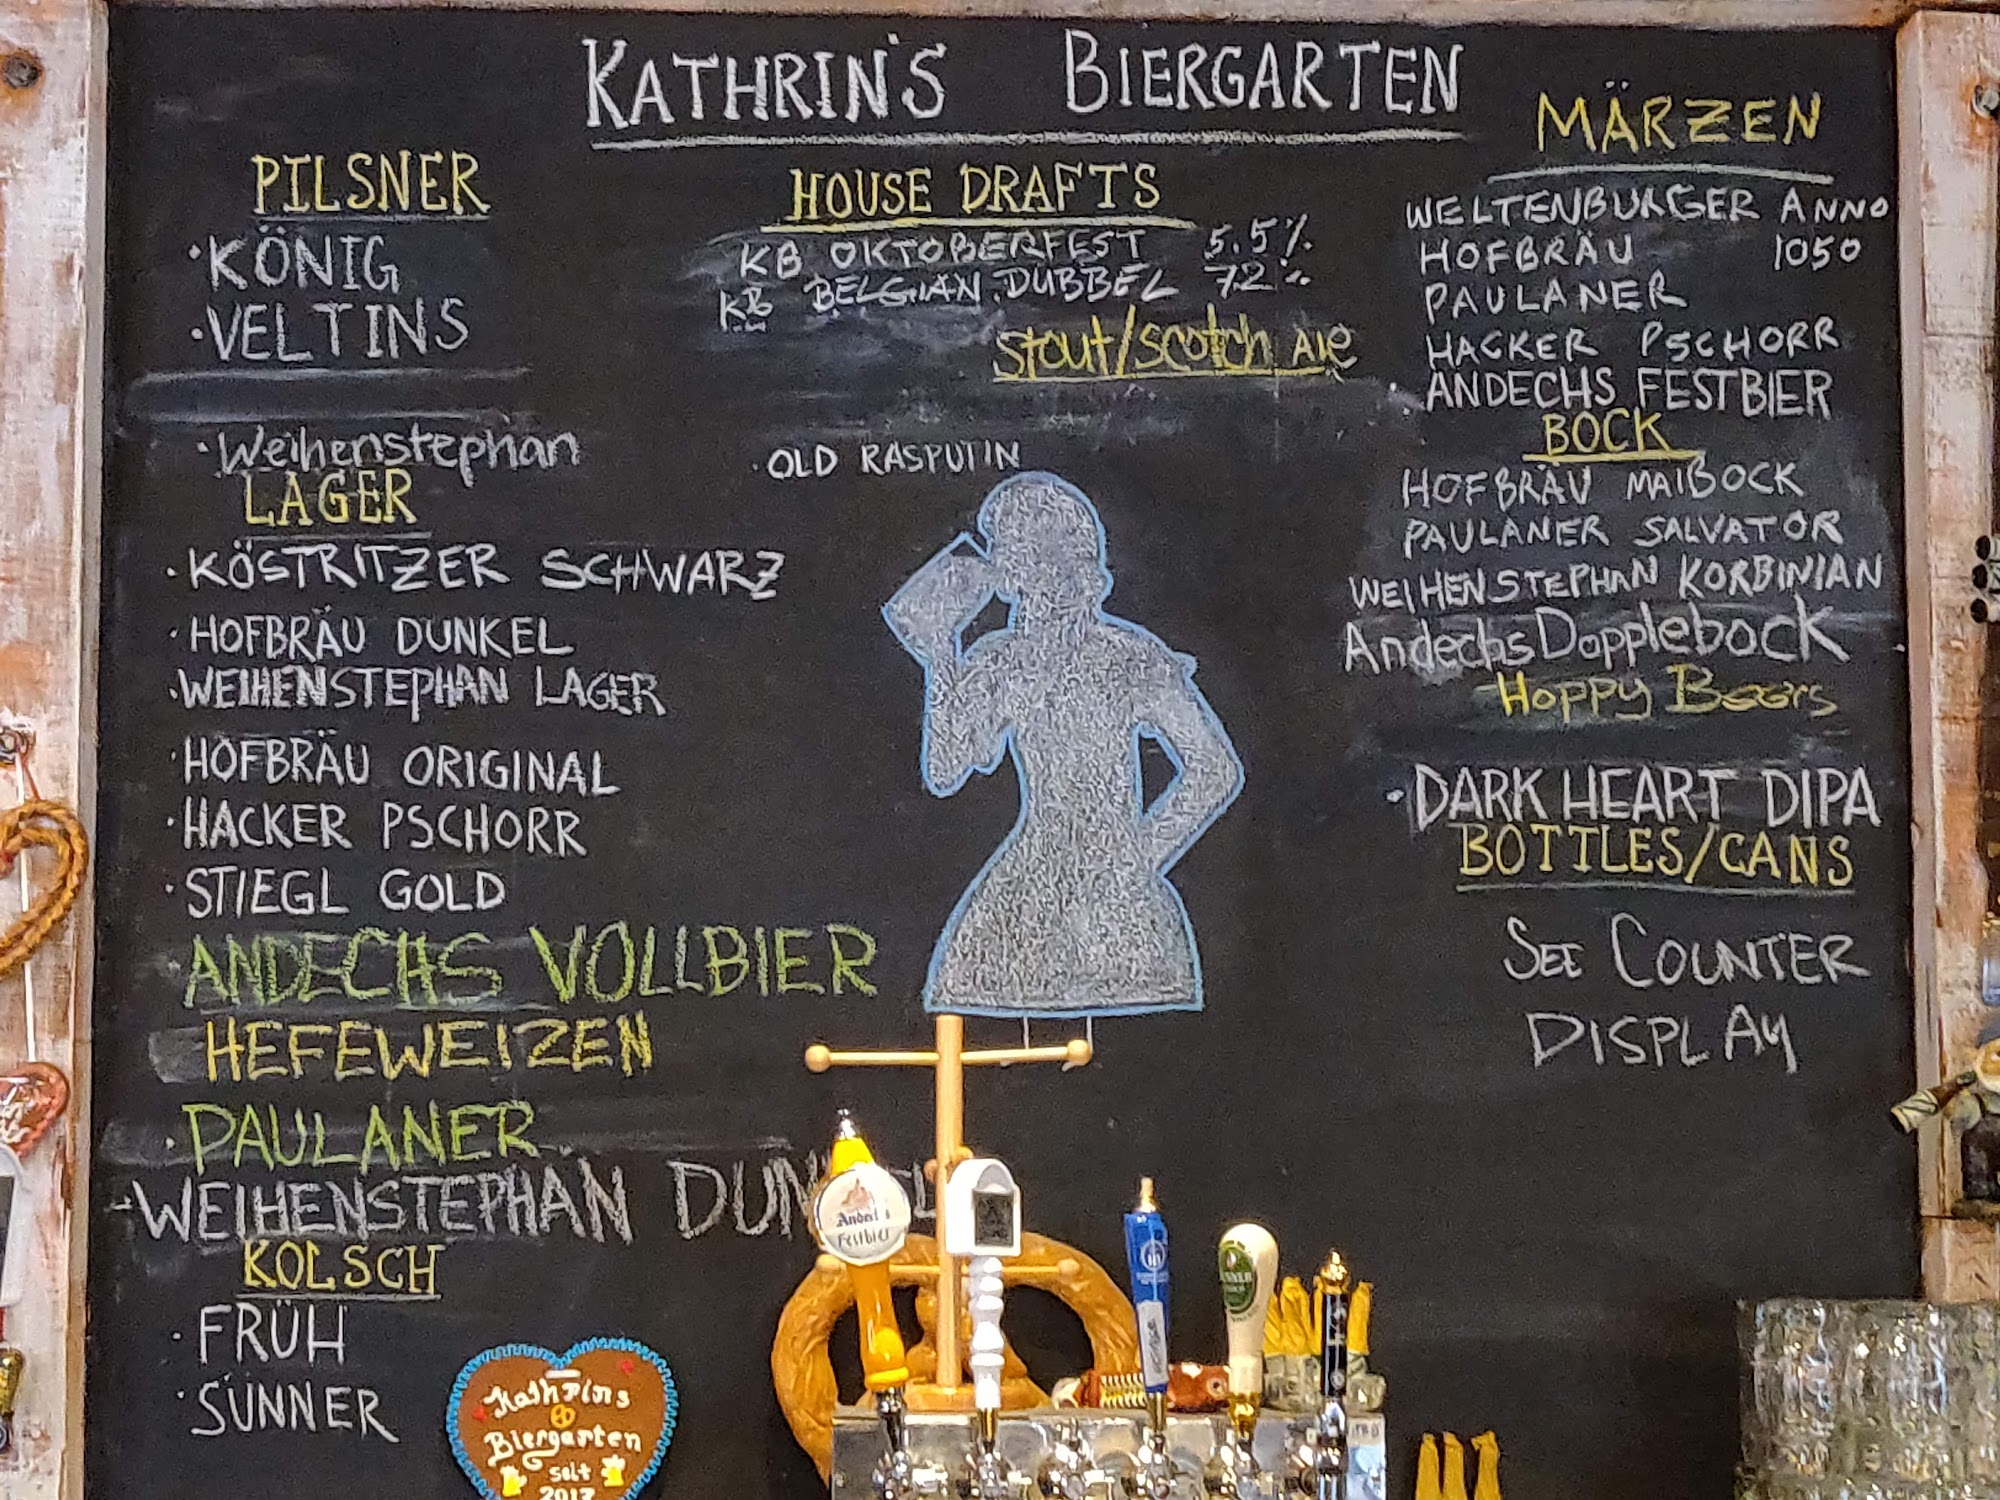 KATHRIN'S BIERGARTEN
PILSNER
·KÖNIG
·VELTINS
·Weihenstephan
LAGER
·KÖSTRITZER SCHWARZ
·HOFBRÄU DUNKEL
·WEIHENSTEPHAN LAGER
·HOFBRÄU ORIGINAL
·HACKER PSCHORR
·STIEGL GOLD
ANDECHS VOLLBIER
HEFEWEIZEN
·PAULANER
-WEIHENSTEPHAN
KOLSCH
·FRÜH
·SÜNNER
HOUSE DRAFTS
KB OKTOBERFEST 5.5%
KB BELGIAN DUBBEL 7.2%
Stout/scotch Ale
·OLD RASPUTIN
MÄRZEN
WELTENBURGER ANNO
HOFBRÄU 1050
PAULANER
HACKER PSCHORR
ANDECHS FESTBIER
BOCK
HOFBRÄU MAIBOCK
PAULANER SALVATOR
WEIHENSTEPHAN KORBINIAN
Andechs Dopplebock
Hoppy Beers
·DARK HEART DIPA
BOTTLES/CANS
SEE COUNTER
DISPLAY
Festbier
Kathrins
Biergarten
seit
2017